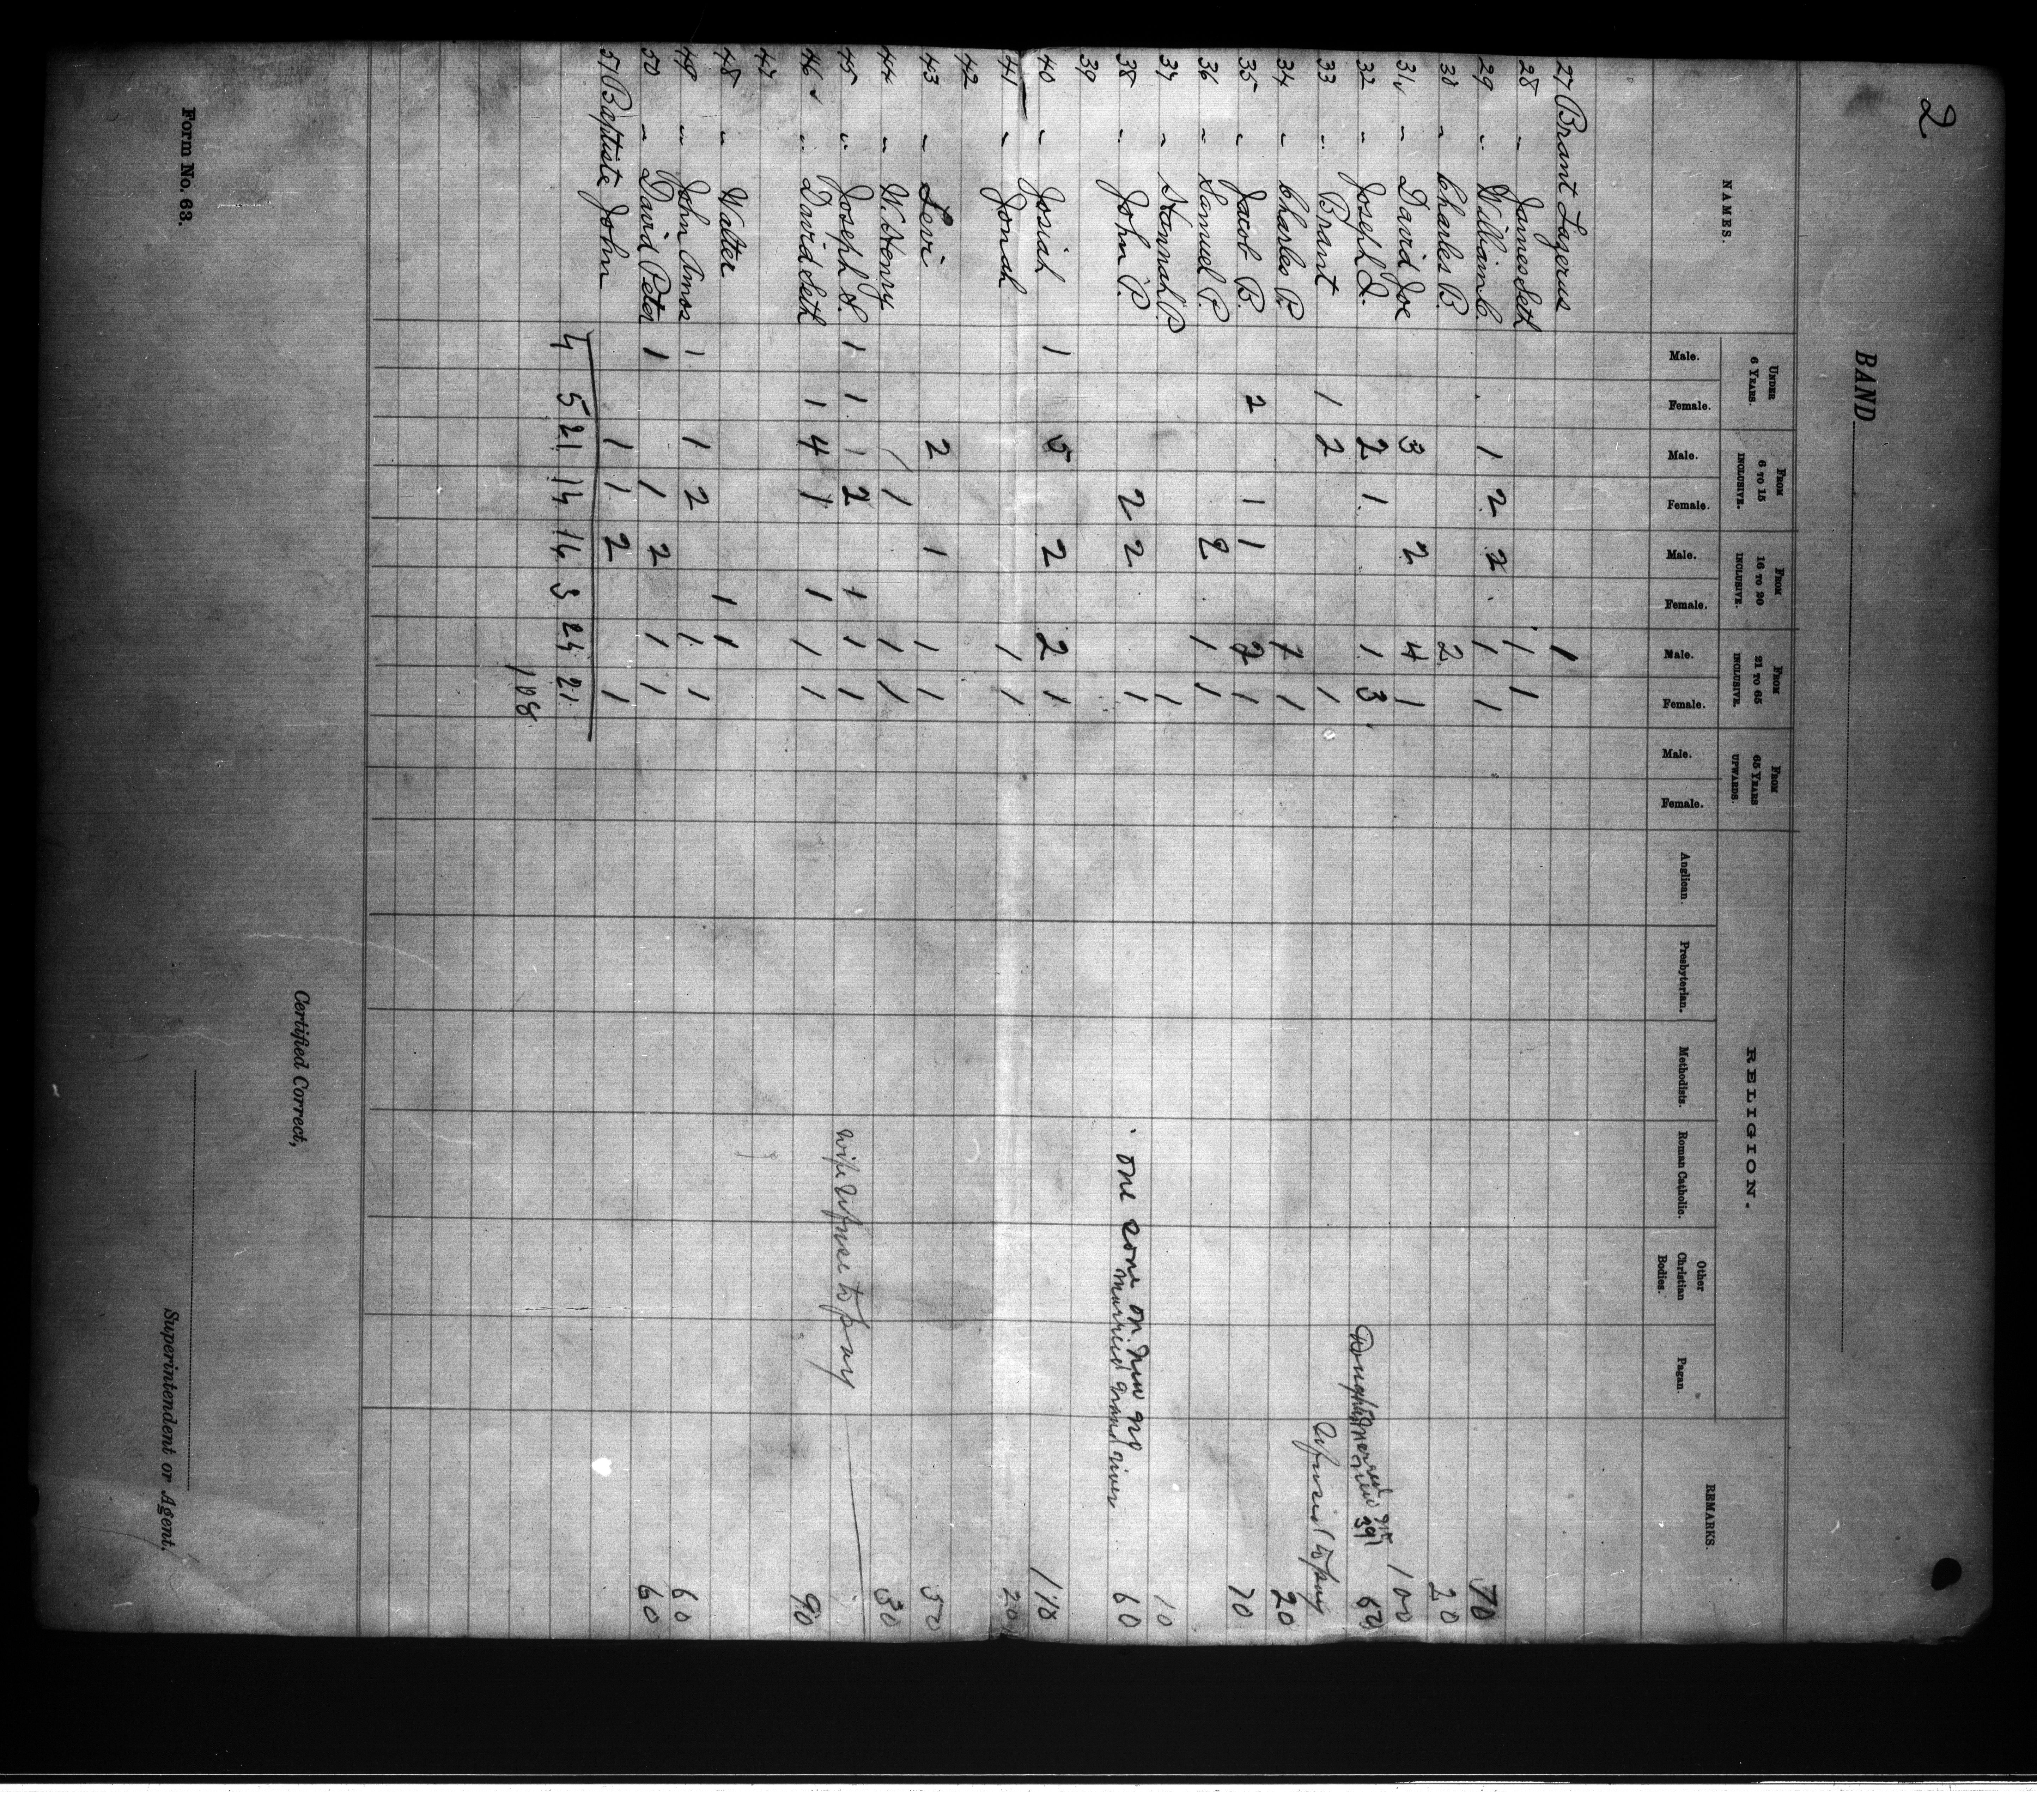 2
BAND
NAMES.
UNDER 6 YEARS.
FROM 6 TO 15 INCLUSIVE.
FROM 16 TO 20 INCLUSIVE.
FROM 21 TO 65 INCLUSIVE.
FROM 65 YEARS UPWARDS.
RELIGION.
REMARKS.
Male. Female. Male. Female. Male. Female. Male. Female. Male. Female.
Anglican. Presbyterian. Methodists. Roman Catholic. Other Christian Bodies. Pagan.
27 Brant Lazerus 1
28 " James Seth 1 1
29 " William C. 1 2 2 1 1 70
30 " Charles B. 2 20
31 " David Joe 3 2 4 1 100
32 " Joseph I. 2 1 1 3
33 " Brant 1 2 1 refused to pay
34 " Charles P. 1 20
35 " Jacob B. 2 1 1 2 1 70
36 " Samuel P. 2 1 1
37 " Hannah P. 1 10
38 " John P. 2 2 1 one gone on new no 60
married grand river
39
40 " Josiah 1 5 2 2 1 110
41 " Jonah 1 1 20
42
43 " Levi 2 1 1 1 50
44 " W. Henry 1 1 1 30
45 " Joseph S. 1 1 1 2 1 1 1 wife refuse to pay
46 " David Seth 1 4 1 1 1 1 90
47
48 " Walter 1 1
49 " John Amos 1 1 2 1 1 60
50 " David Peter 1 1 2 1 1 60
51 Baptiste John 1 1 2 1
4 5 21 14 16 3 24 21
108
Certified Correct,
Superintendent or Agent.
Form No. 63.